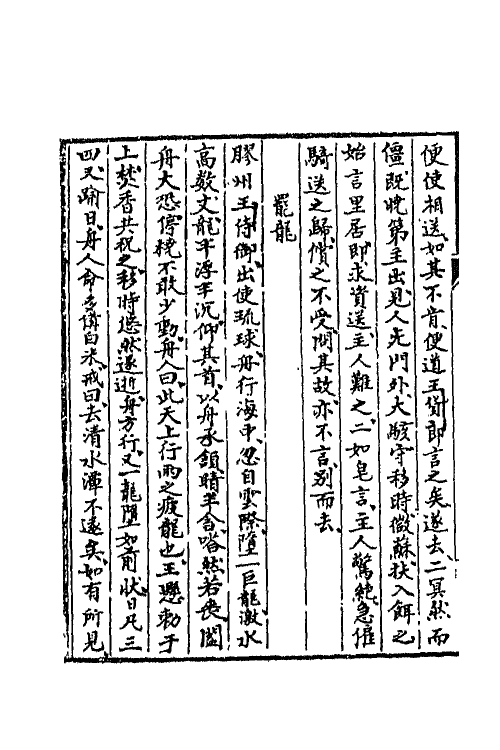 便使相送如其不肯便道王貨郎言之矣遂去二冥然而
僵既曉第主出見人死門外大駭守移時微蘇扶入餌之
始言里居即求資送主人難之二如皂言主人驚絕急僱
騎送之歸償之不受問其故亦不言別而去
罷龍
膠州王侍御出使琉球舟行海中忽自雲際墮一巨龍激水
高數丈龍半浮半沉仰其首以舟承頷睛半含嗒然若喪闔
舟大恐停橈不敢少動舟人曰此天上行雨之疲龍也王懸勅于
上焚香共祝之移時悠然遂逝舟方行又一龍墮如前狀日凡三
四又踰日舟人命多備白米戒曰去清水潭不遠矣如有所見